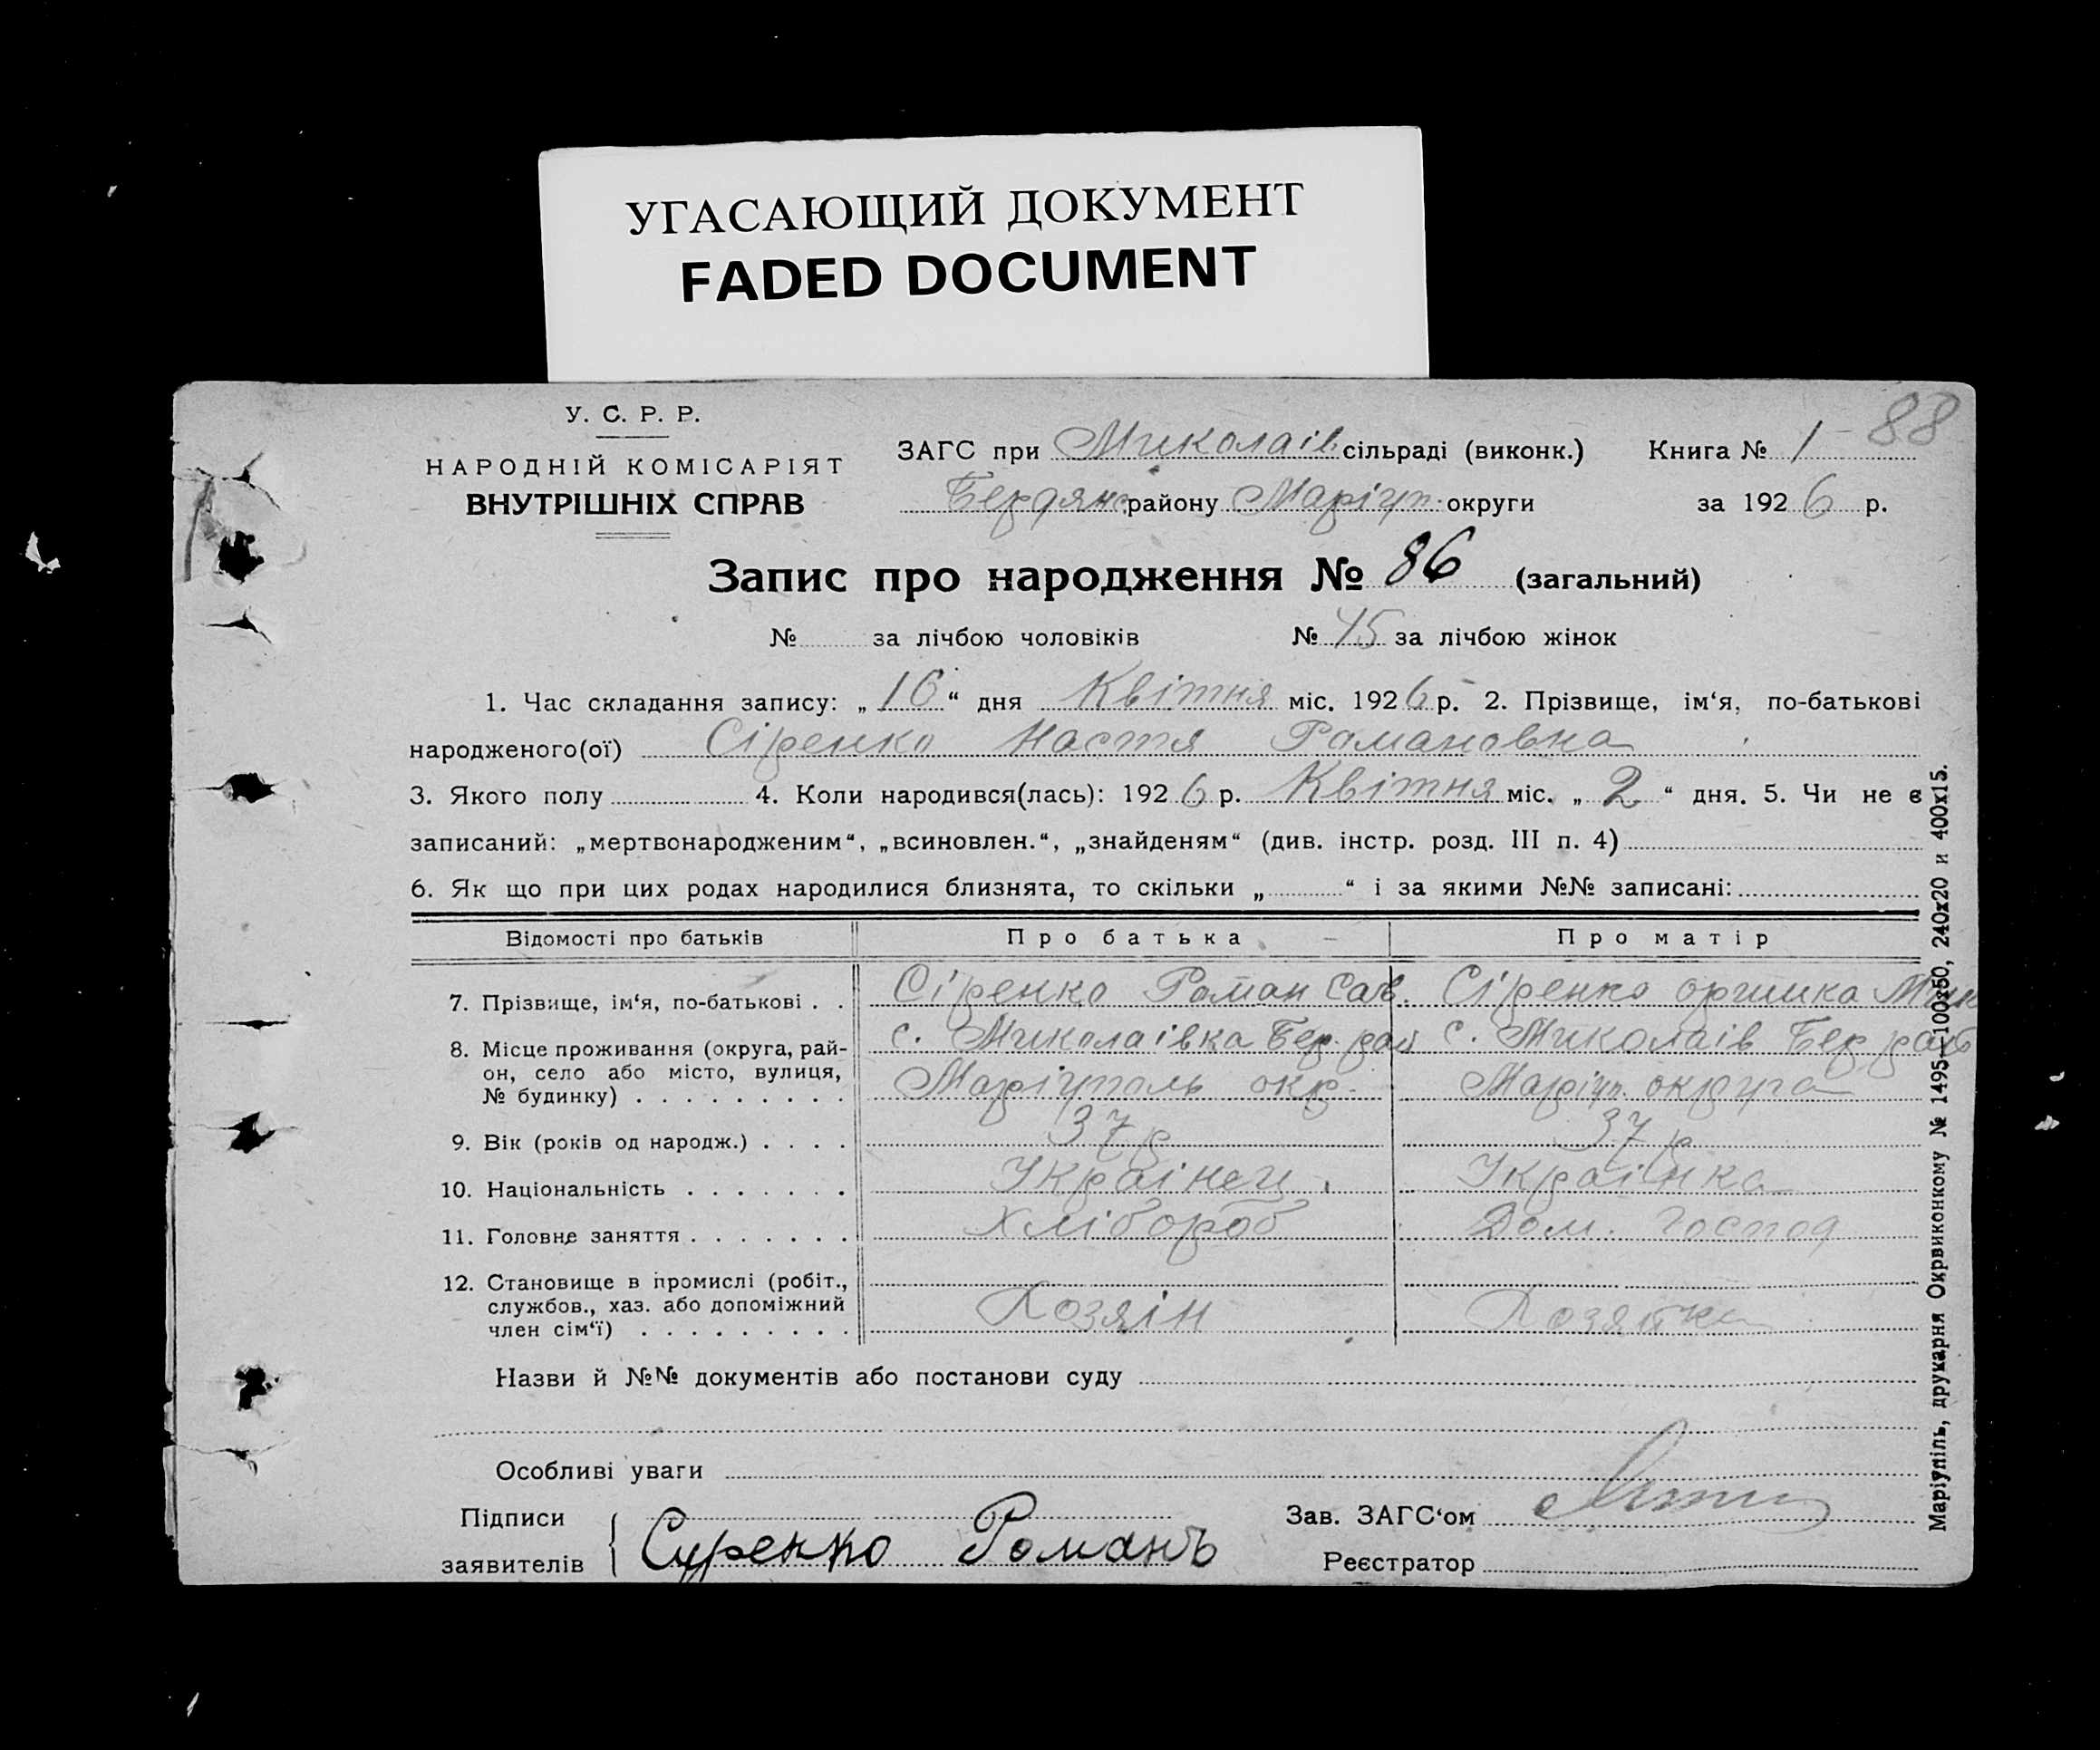 УГАСАЮЩИЙ ДОКУМЕНТ
FADED DOCUMENT
У. С. Р. Р.
НАРОДНІЙ КОМІСАРІЯТ
ВНУТРІШНІХ СПРАВ
88
ЗАГС при Миколаів. сільраді (виконк.) Книга № 1
Бердянс. району Маріуп. округи за 1926 р.
Запис про народження № 86 (загальний)
№ за лічбою чоловіків № 45 за лічбою жінок
1. Час складання запису: „16“ дня Квітня міс. 1926 р. 2. Прізвище, ім‘я, по-батькові
народженого(ої) Сіренко Настя Романовна
3. Якого полу 4. Коли народився(лась): 1926 р. Квітня міс. „2“ дня. 5. Чи не є
записаний: „мертвонародженим“, „всиновлен.“, „знайденям“ (див. інстр. розд. III п. 4)
6. Як що при цих родах народилися близнята, то скільки „ “ і за якими №№ записані:
Відомості про батьків Про батька Про матір
7. Прізвище, ім‘я, по-батькові . . Сіренко Роман Сав. Сіренко оришка Мик
8. Місце проживання (округа, рай- с. Миколаівка Бер. рай с. Миколаів Бер рай
он, село або місто, вулиця, Маріуполь окр. Маріуп. округа
№ будинку) . . . . . . . . .
9. Вік (років од народж.) . . . . 37 р 37 р
10. Національність . . . . . . . Украінец. Украінка
11. Головне заняття . . . . . . . Хлібороб Дом. господ
12. Становище в промислі (робіт.,
службов., хаз. або допоміжний Хозяін Хозяйка
член сім‘ї) . . . . . . . . .
Назви й №№ документів або постанови суду
Особливі уваги
Підписи Зав. ЗАГС‘ом
заявителів Суренко Романъ Реєстратор
Маріупіль, друкарня Окрвиконкому № 1495—100х50, 240х20 и 400х15.